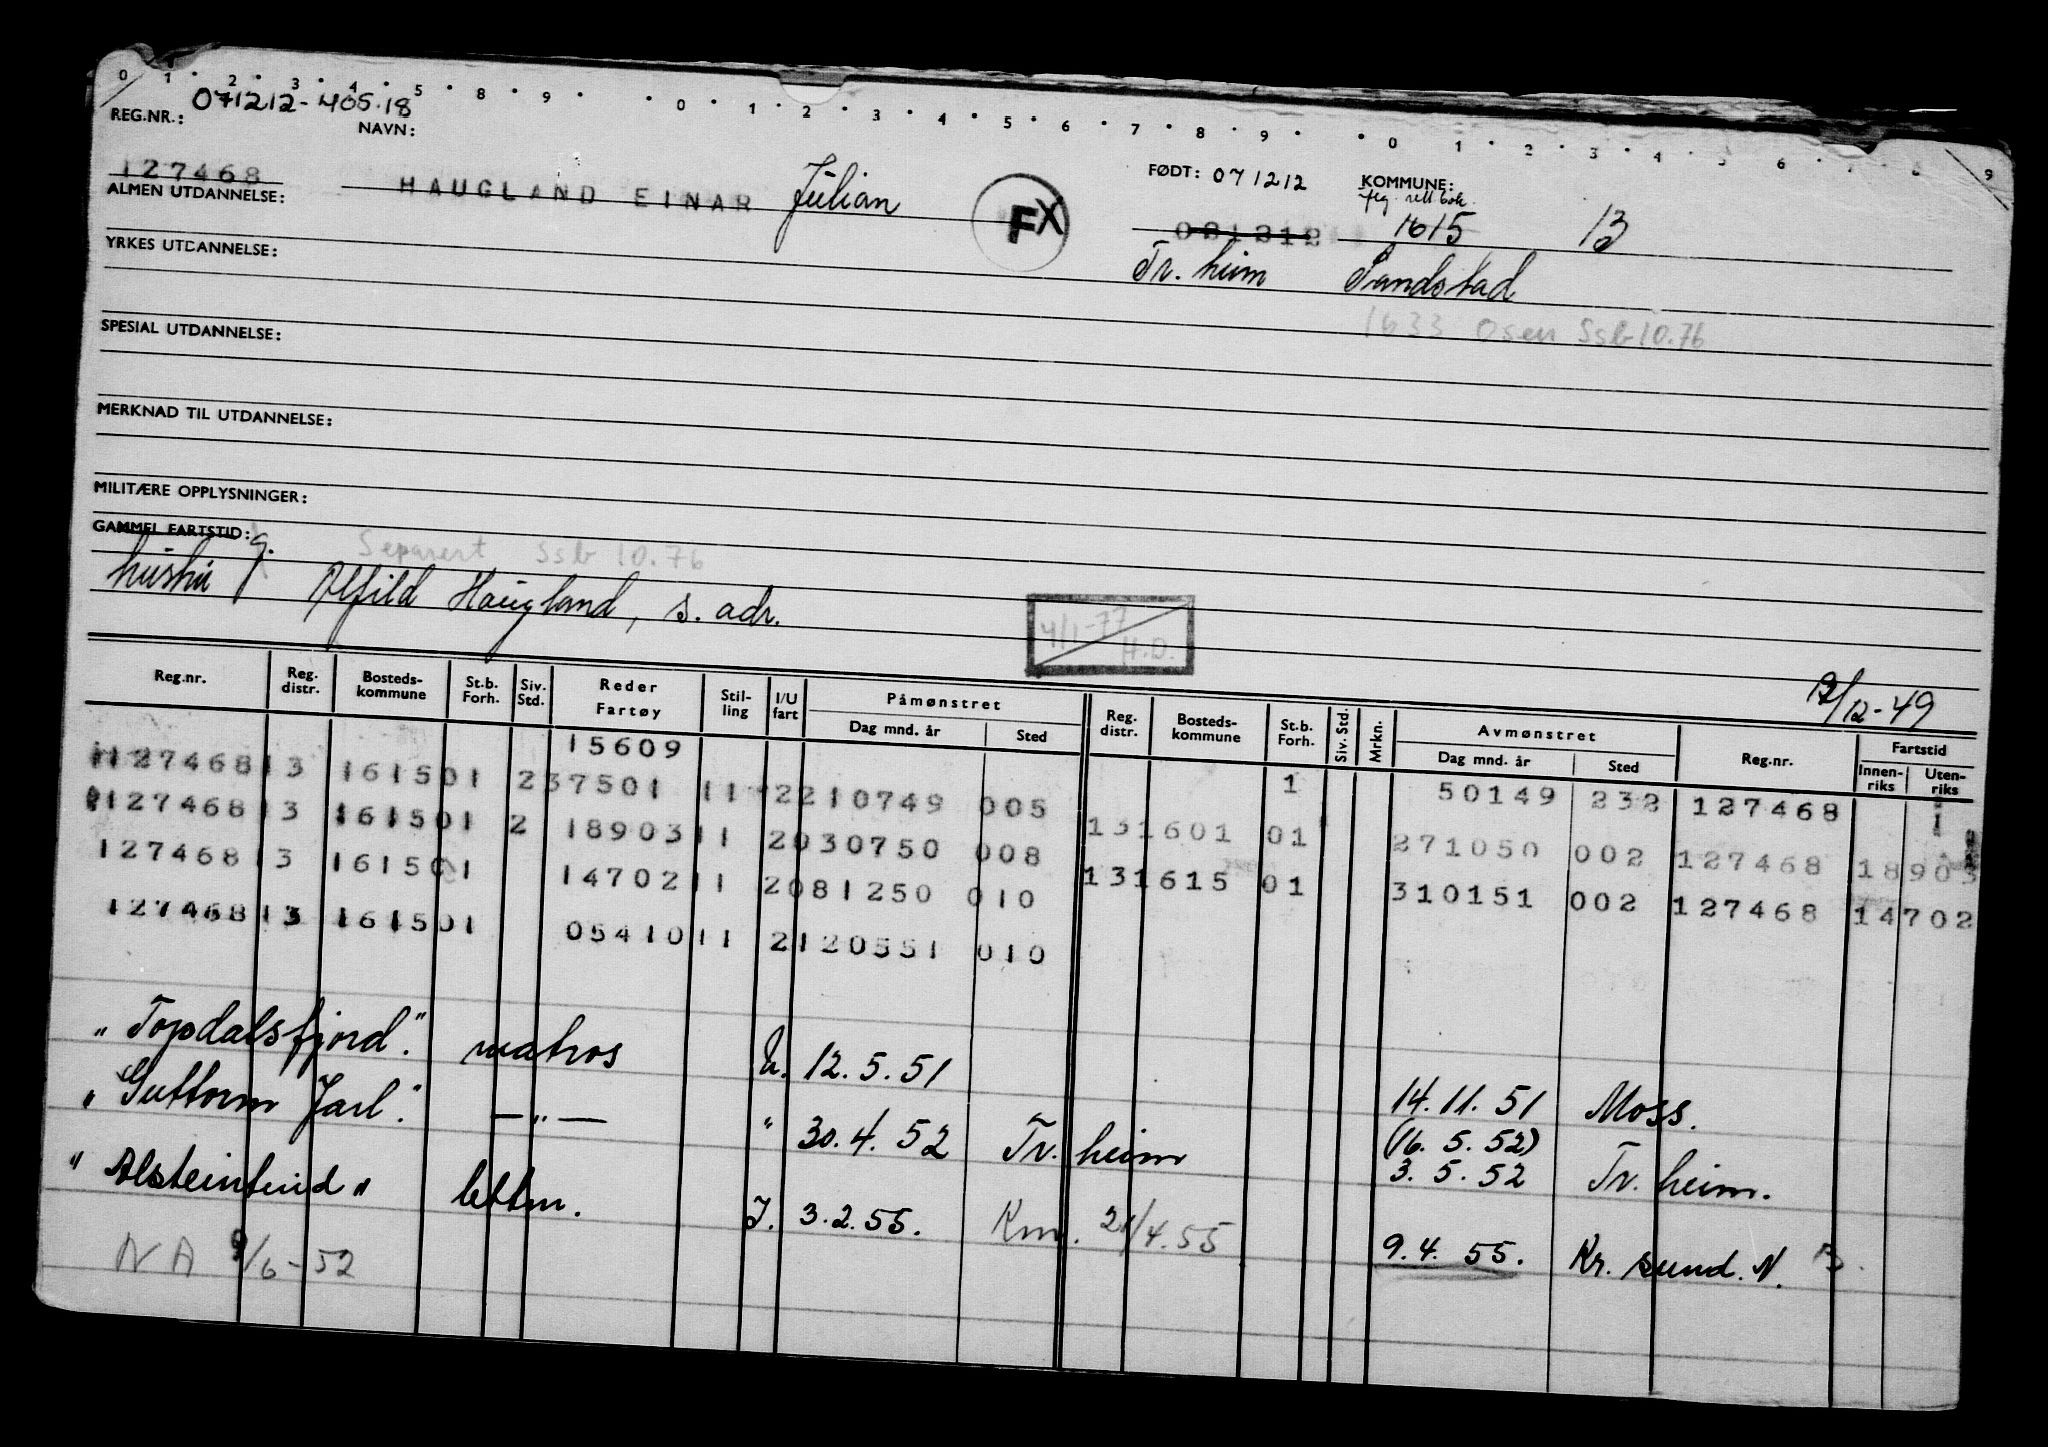 0 1 2 3 4 5 8 9 0 1 2 3 4 5 6 7 8 9 0 1 2 3 4 5 6 9
071212-405.18
REG.NR.: NAVN: FØDT: 071212 KOMMUNE:
jfg. sittbok.
127468 HAUGLAND EINAR Julian FX 081212 1615 13
ALMEN UTDANNELSE:
Tr. heim Sandstad
YRKES UTDANNELSE:
1633 Osen Ssb 10.76
SPESIAL UTDANNELSE:
MERKNAD TIL UTDANNELSE:
MILITÆRE OPPLYSNINGER:
GAMMEL FARTSTID:
Separert Ssb 10.76
hustru g. Alfild Haugland, s. adr.
4/1-77 H.O.
12/12-49
Reg.nr. Reg. distr. Bosteds-kommune St.b. Forh. Siv. Std. Reder Fartøy Stil-ling I/U fart Påmønstret Dag mnd. år Sted Reg. distr. Bosteds-kommune St.b. Forh. Siv. Std. Mrkn. Avmønstret Dag mnd. år Sted Reg.nr. Fartstid Innen-riks Uten-riks
15609
127468 13 1615 01 2 37501 11 2 210749 005 1 50149 232 127468 1
127468 13 1615 01 2 18903 11 2 030750 008 13 1601 01 271050 002 127468 18903
127468 13 1615 01 14702 11 2 081250 010 13 1615 01 310151 002 127468 14702
127468 13 1615 01 05410 11 2 120551 010
"Topdalsfjord." matros U. 12.5.51 14.11.51 Moss.
"Guttorm Jarl." —"— " 30.4.52 Tr. heim (16.5.52) 3.5.52 Tr. heim.
"Alsteintind" lettm. I. 3.2.55. Km. 21/4.55 9.4.55. Kr. sund. N.
NA 9/6-52